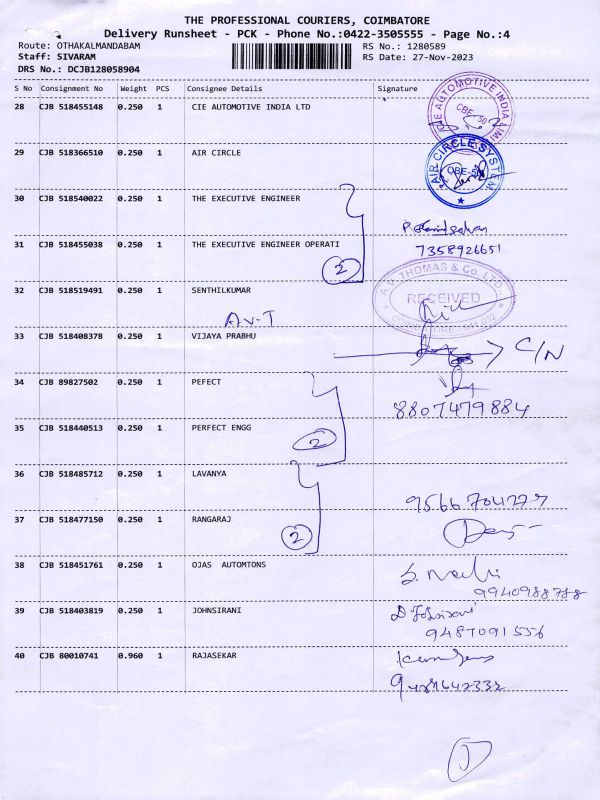 THE PROFESSIONAL COURIERS, COIMBATORE
Delivery Runsheet - PCK - Phone No.:0422-3505555 - Page No.:4
Route: OTHAKALMANDABAM RS No.: 1280589
Staff: SIVARAM RS Date: 27-Nov-2023
DRS No.: DCJB128058904
S No Consignment No Weight PCS Consignee Details Signature
28 CJB 518455148 0.250 1 CIE AUTOMOTIVE INDIA LTD
CIE AUTOMOTIVE INDIA LIMI
CBE-50
29 CJB 518366510 0.250 1 AIR CIRCLE
AIR CIRCLE SYSTEM
CBE-50
30 CJB 518540022 0.250 1 THE EXECUTIVE ENGINEER
31 CJB 518455038 0.250 1 THE EXECUTIVE ENGINEER OPERATI
7358926651
2
32 CJB 518519491 0.250 1 SENTHILKUMAR
A.V. THOMAS & Co. LTD.
RECEIVED
A.V-T
33 CJB 518408378 0.250 1 VIJAYA PRABHU
C/N
34 CJB 89827502 0.250 1 PEFECT
8807479884
35 CJB 518440513 0.250 1 PERFECT ENGG
2
36 CJB 518485712 0.250 1 LAVANYA
37 CJB 518477150 0.250 1 RANGARAJ
2
38 CJB 518451761 0.250 1 OJAS AUTOMTONS
9940988788
39 CJB 518403819 0.250 1 JOHNSIRANI
9487091556
40 CJB 80010741 0.960 1 RAJASEKAR